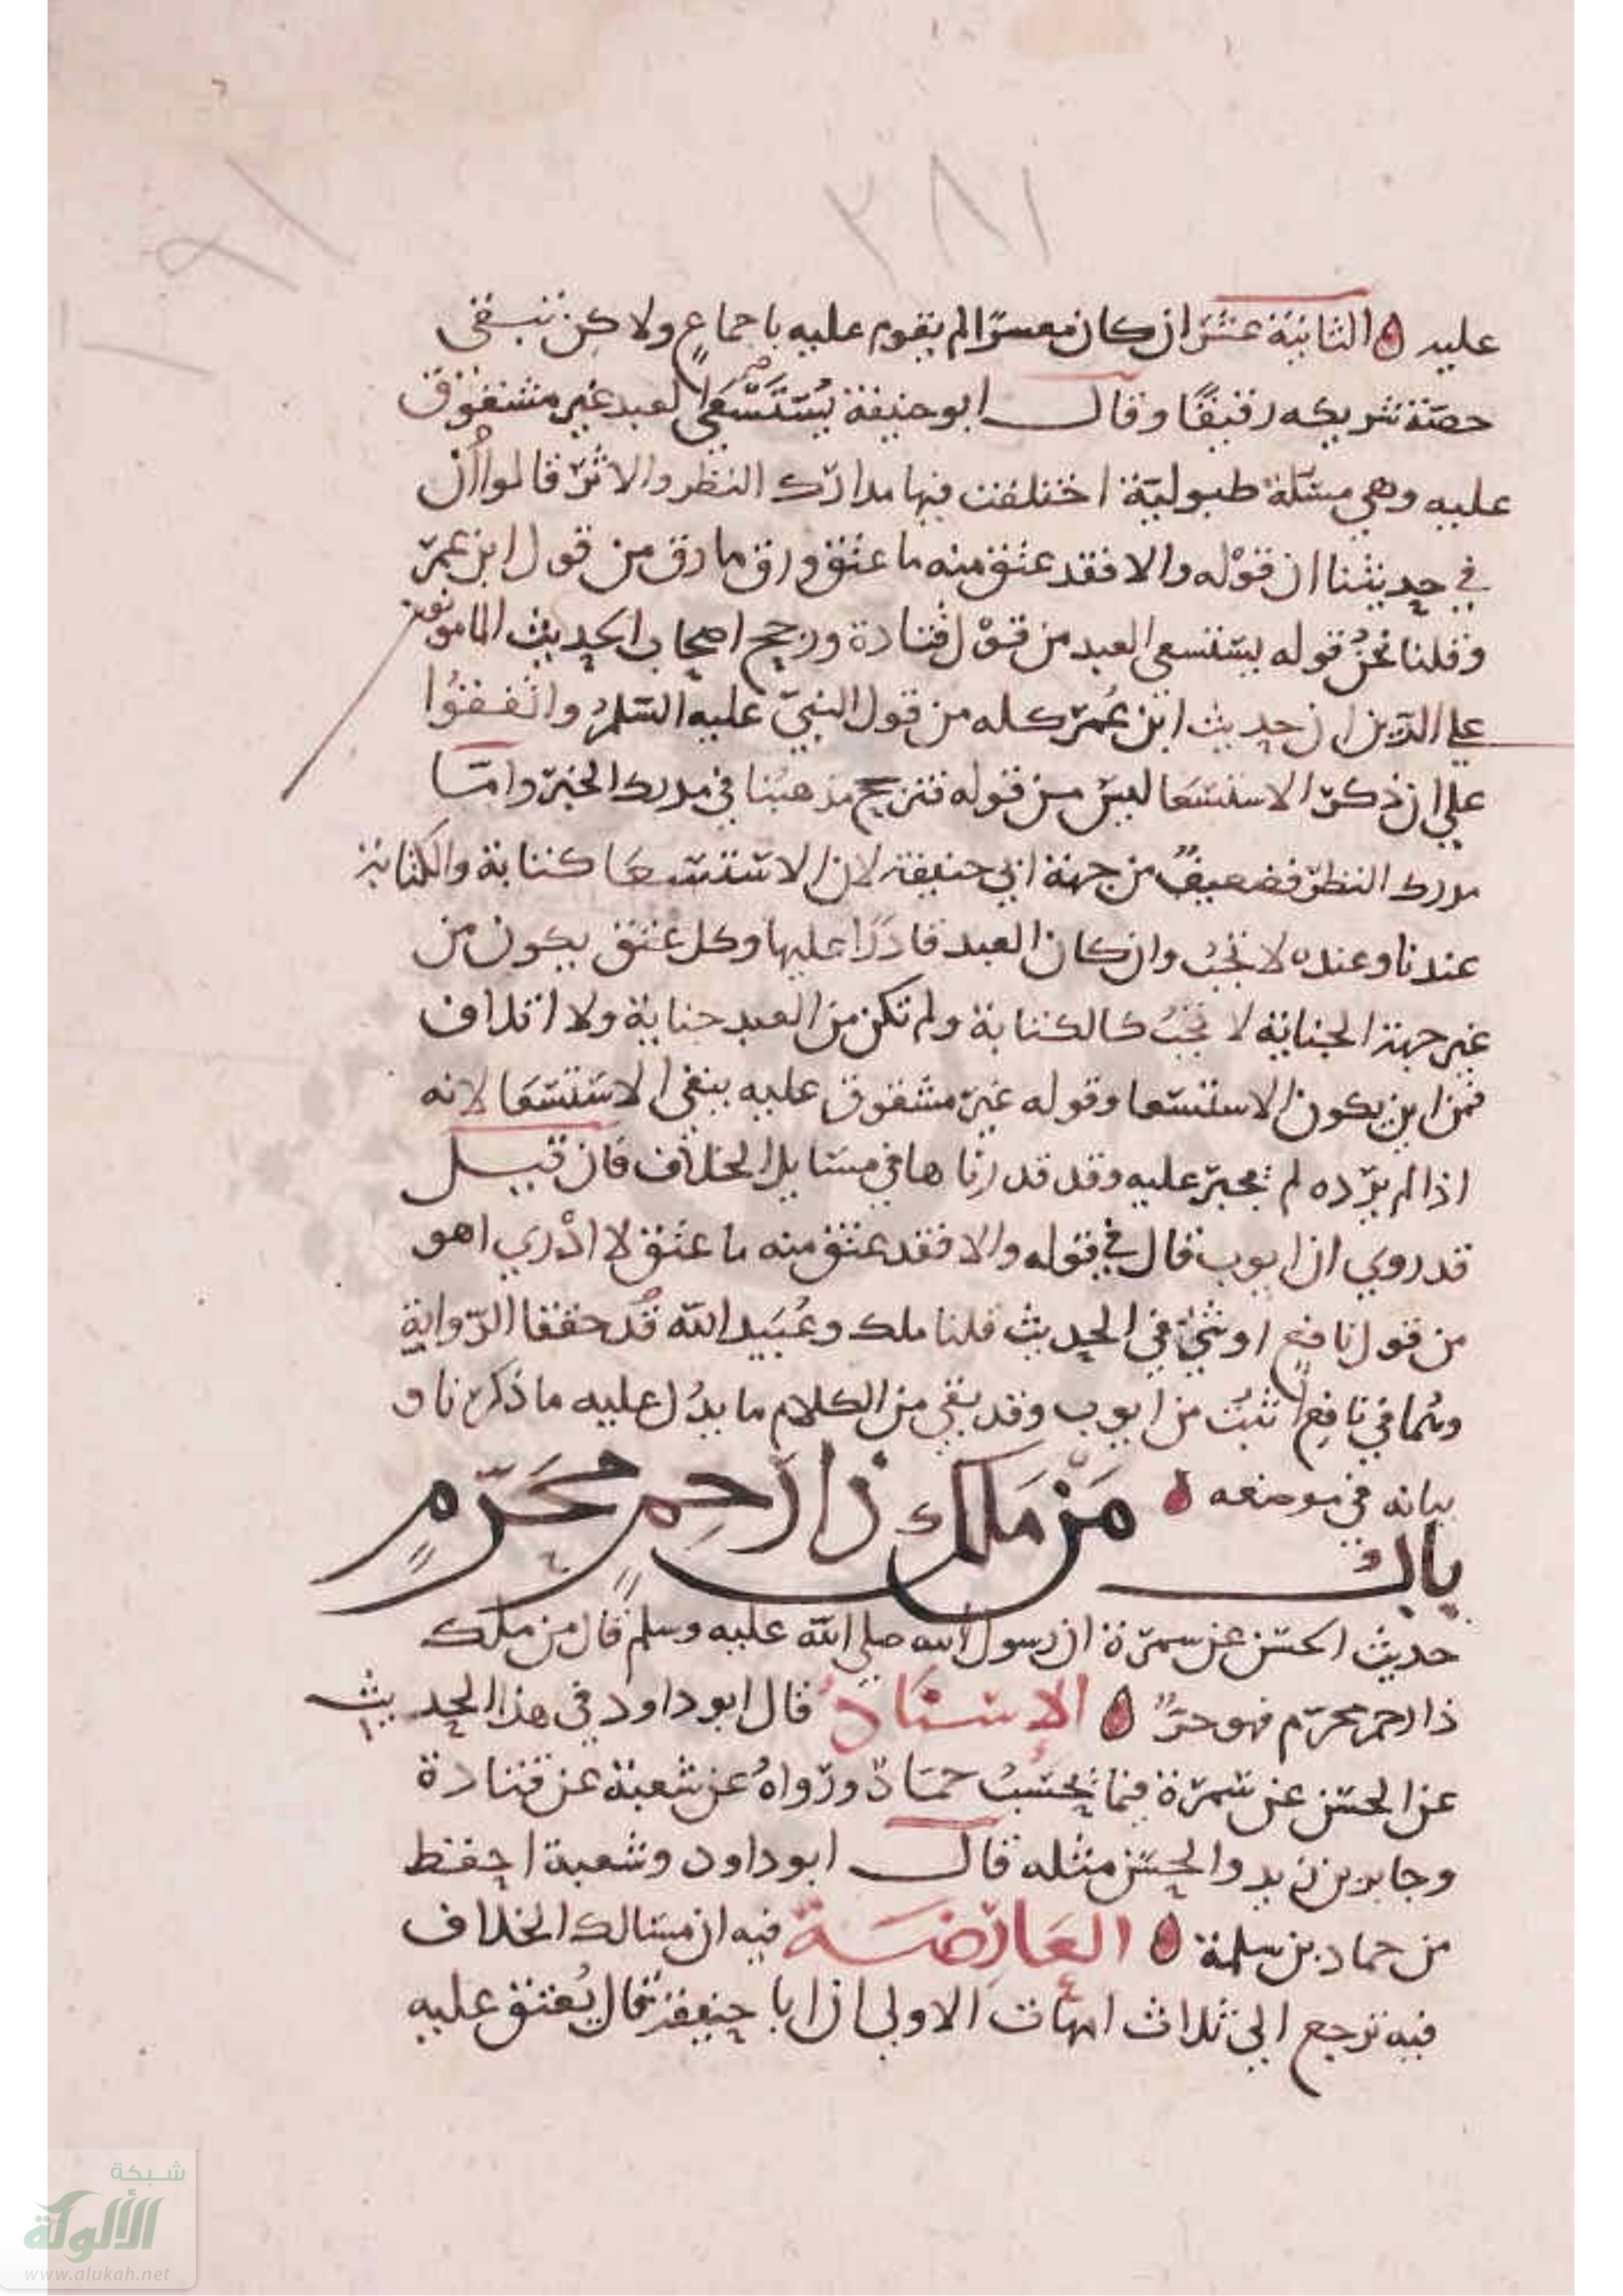 ٢٨١
عليه الثانية عشر ان كان معسرًا لم يقوم عليه باجماعٍ ولاكن تبقى
حصّة شريكه رقيقًا وقال ابو حنيفة يُسْتَسْعَى العبد غير مشقوق
عليه وهي مسّلة طبولية اختلفت فيها مدارك النظر والاثر قالوا ان
في حديثنا ان قوْله والا فقد عتق منه ما عتق ورق ما رق من قول ابن عمر
وقلنا نحنُ قوله يستسعى العبد من قوْل قتادة ورجح اصحاب الحديث المامونون
على الدّين ان حديث ابن عُمر كله من قول النبيّ عليه السّلمُ واتّفقُوا
على ان ذكر الاستسعا ليس من قوله فترجح مذهبُنا في مدرك الخبر وامّا
مدرك النظر فضعيفٌ من جهة ابي حنيفة لان الاستسعا كتابة والكتابة
عندنا وعنده لا تجبُ وان كان العبد قادرًا عليها وكل عتق يكون من
غير جهة الجناية لا تجبُ كالكتابة ولم تكن من العبد جناية ولا اتلاف
فمن اين يكون الاستسعا وقوله غير مشقوق عليه ينفي الاستسعا لانه
اذا لم يرده لم يجبر عليه وقد قدرناها في مسايل الخلاف فان قيل
قد روي ان ايوب قال في قوله والا فقد عتق منه ما عتق لا ادْري اهو
من قول نافع او شيٌ في الحديث قلنا ملك وعُبَيد الله قد حققا الرّواية
وهُما في نافِعٍ اثبتُ من ايوب وقد بقي من الكلام ما يدُل عليه ما ذكرنا و
بيانه في موضعه
بابُ مَنْ مَلَك ذا رَحِمٍ مَحَرّمٍ
حديث الحسَن عن سمرة ان رسول الله صلى الله عليه وسلم قال من ملك
ذا رحم محرّم فهو حرٌ الإسنادُ قال ابو داود في هذا الحديث
عن الحسَن عن سَمرة فيما يَحْسَبُ حمّاد ورواهُ عن شعبة عن قتادة
وجابر بن زيد والحسَن مثله قال ابو داود وشعبة احفظ
من حماد بن سلمة العَارِضَة فيه ان مسَالك الخلاف
فيه ترجع الى ثلاث امهات الاولى ان ابا حنيفة قال يُعتق عليه
شبكة
الألوكة
www.alukah.net